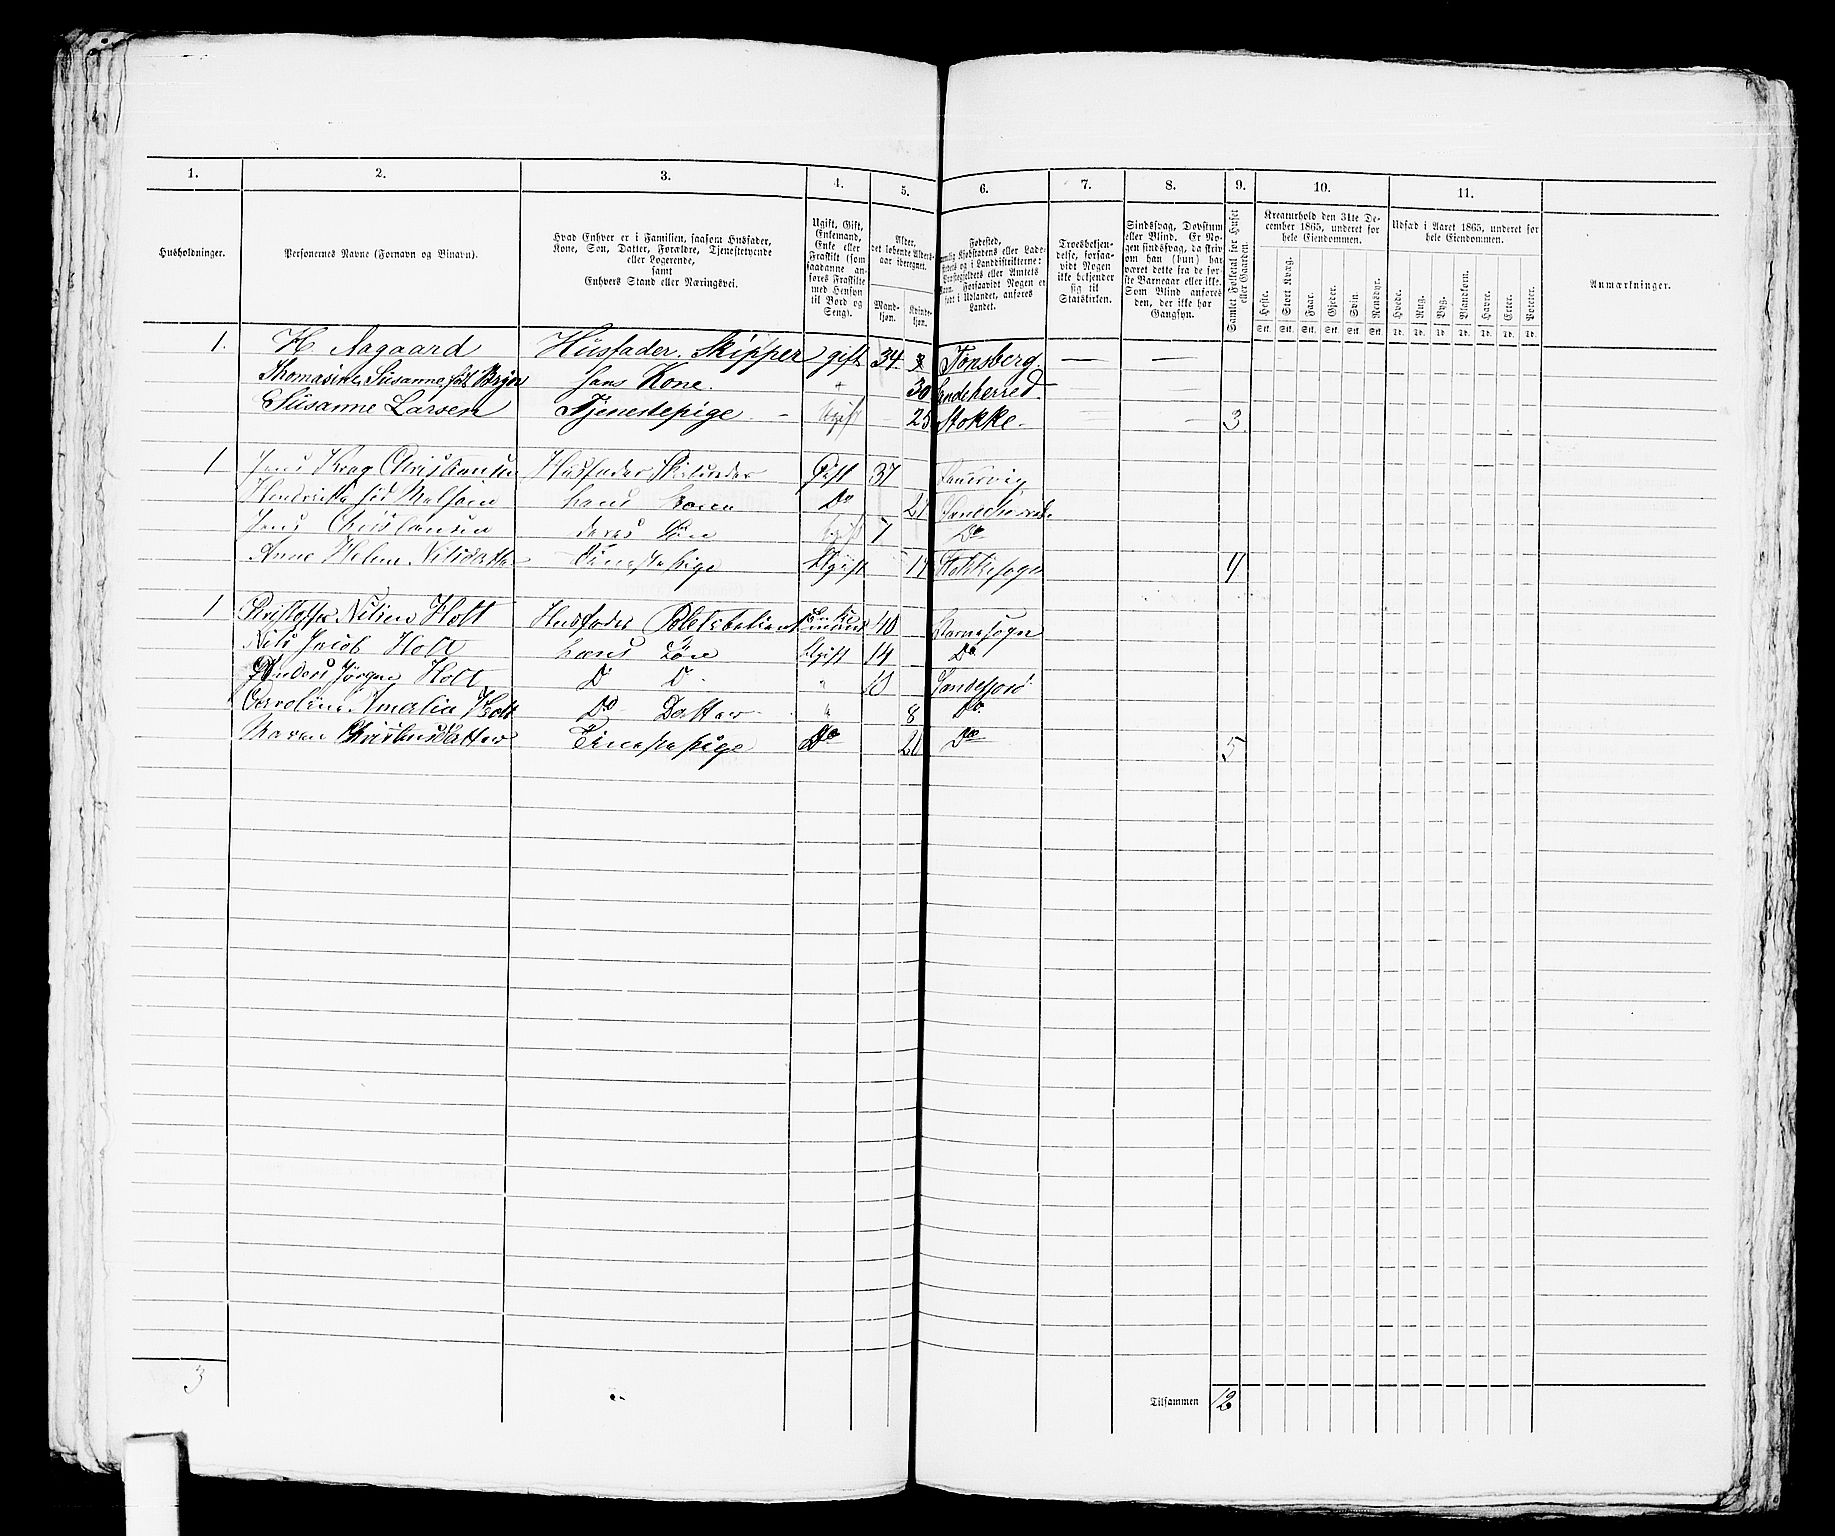 1. 2. 3. 4. 5. 6. 7. 8. 9. 10. 11.
Husholdninger.
Personernes Navne (Fornavn og Binavn).
Hvad Enhver er i Familien, saasom Husfader,
Kone, Søn, Datter, Forældre, Tjenestetyende
eller Logerende,
samt
Enhvers Stand eller Næringsvei.
Ugift, Gift,
Enkemand,
Enke eller
Fraskilt (som
saadanne an-
føres Fraskilte
med Hensyn
til Bord og
Seng).
Alder,
det løbende Alders-
aar iberegnet.
Mand-
kjøn.
Kvinde-
kjøn.
Fødested,
nemlig Kjøbstadens eller Lade-
stedets og i Landdistrikterne:
Præstegjeldets eller Amtets
Navn. Forsaavidt Nogen er
født i Udlandet, anføres
Landet.
Troesbekjen-
delse, forsaa-
vidt Nogen
ikke bekjender
sig til
Statskirken.
Sindssvag, Døvstum
eller Blind. Er No-
gen sindssvag, da skriv
om han (hun) har
været dette fra de før-
ste Barneaar eller ikke.
Som Blind anføres
den, der ikke har
Gangsyn.
Samlet Folketal for Huset
eller Gaarden.
Kreaturhold den 31te De-
cember 1865, underet for
hele Eiendommen.
Heste. Stort Kvæg. Faar. Gjeder. Svin. Rensdyr.
Stk. Stk. Stk. Stk. Stk. Stk.
Udsæd i Aaret 1865, underet for
hele Eiendommen.
Hvede. Rug. Byg. Blandkorn. Havre. Erter. Poteter.
Td. Td. Td. Td. Td. Td. Td.
Anmærkninger.
1. H. Aagaard Husfader. Skipper gift 34 Tønsberg. — —
Thomasine Susanne født hans Kone. " 30 Sandeherred
Susanne Larsen Tjenestepige Ugift 25 Stokke. 3
1 Jens Krag Christiansen Husfader Gift 37 Laurvig
født hans Kone Do 27 Sandeherred.
Jens Christiansen deres Søn Ugift 7 Do
Anne Helene Tienestepige Ugift 17 Stokkesogn 4
1 Kristoffer Nilsen Holt Husfader Enkemand 40
Nils Jacob Holt hans Søn Ugift 14 Do
Anders Jørgen Holt D D " 10 Sandefjord
Caroline Amalia Holt Do Datter " 8 Do
Maren Christensdatter Tienestepige Do Do 5
3 Tilsammen 12